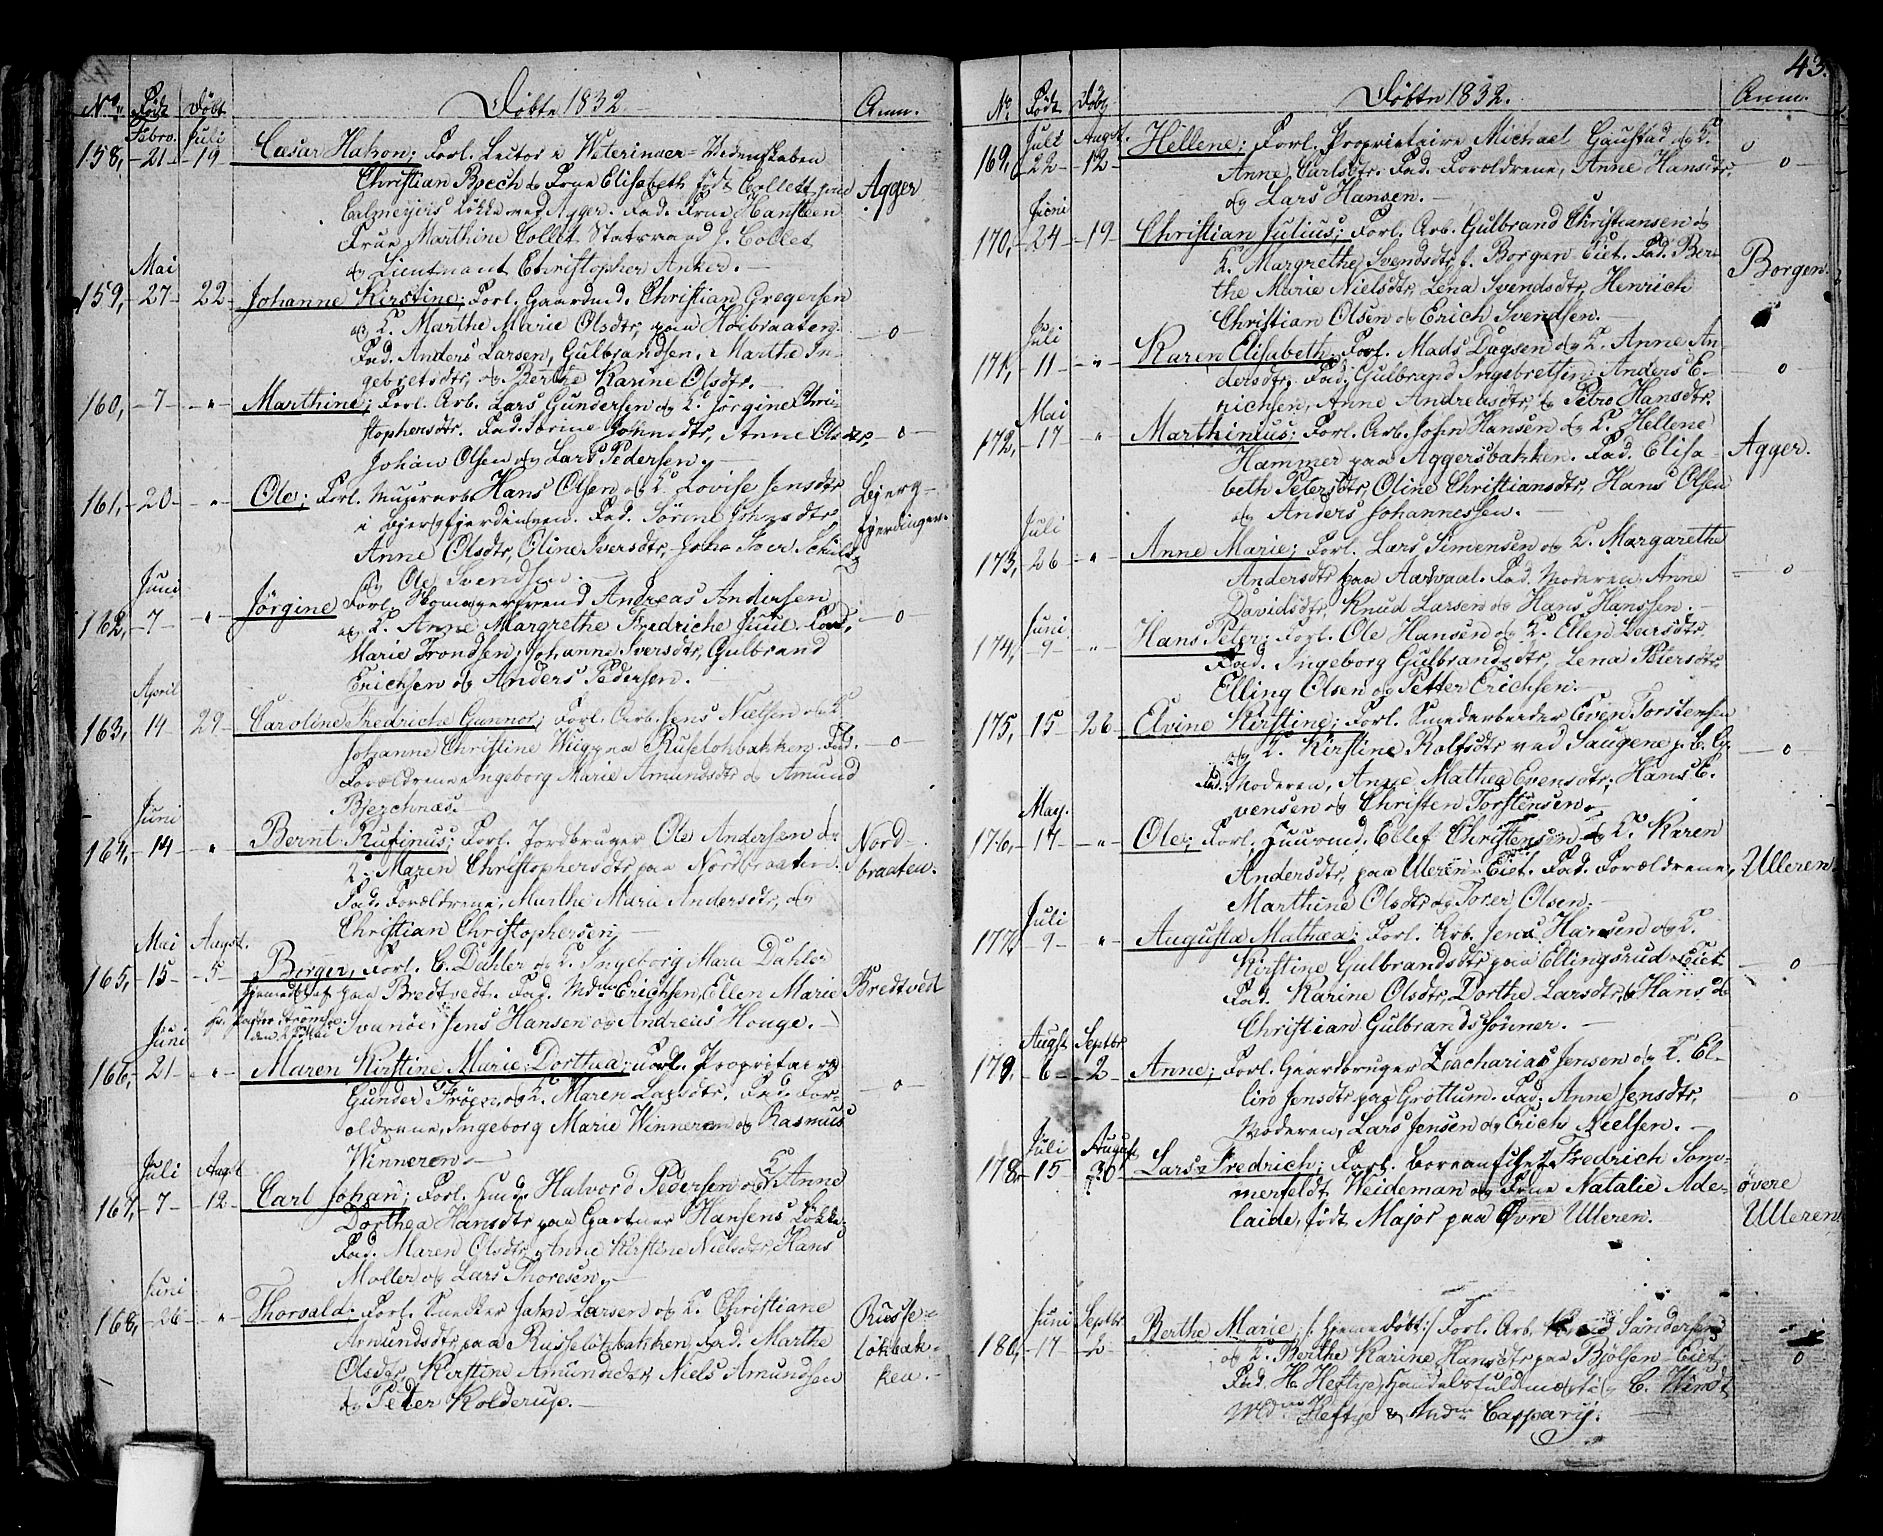 No. Født Døbt Døbte 1832 Anm.
Febr. Juli
158, 21 19 Cæsar Hakon; Forl. Lector i Veterinær-Videnskaben
Christian Boech og Frue Elisabeth født Collett paa Agger
Calmeyers Løkke ved Agger. Fad. Frue Hansteen
Frue Marthine Collet Statsraad J. Collet
og Lieutnant Christopher Anker.
Mai
159, 27 22 Johanne Kirstine; Forl. Gaardmd. Christian Gregersen
og K. Marthe Marie Olsdtr, paa Høibraaten o
Fad. Anders Larsen, Gulbrandsen, Marthe In-
gebretsdtr, og Berthe Karine Olsdtr.
160, 7 " Marthine; Forl. Arb. Lars Gundersen og K. Jørgine Chri-
stophersdtr. Fad. Sørine Johnsdtr, Anne Olsdtr, o
Johan Olsen og Lars Pedersen.
161, 20 " Ole; Forl. Muurarb. Hans Olsen og K. Lovise Jensdtr Bjerg-
i Bjergfjerdingen. Fad. Sørine Johnsdtr fjerdingen.
Anne Olsdtr, Oline Iversdtr, John Iver Schults
og Ole Svendsen.
Juni
162, 7 " Jørgine Forl. Skomagersvend Andreas Andersen
og K. Anne Margrethe Fredriche Juul. Fad. o
Marie Trondsen, Johanne Iversdtr, Gulbrand
Erichsen og Anders Pedersen.
April
163, 14 29 Caroline Fredriche Gunnor; Forl. Arb. Jens Nielsen og K
Johanne Christine Weig paa Ruseløhbakken. Fad. o
Forældrene Ingeborg Marie Amundsdtr og Amund
Bjerchnæs.
Juni
164, 14 " Bernt Rufinus; Forl. Jordbruger Ole Andersen og Nord-
K. Maren Christophersdtr paa Nordbraaten. braaten.
Fad. Forældrene, Marthe Marie Andersdtr, og
Christian Christophersen
Mai Augst.
165, 15 5 Børger, Forl. C. Dahler og K. Ingeborg Marie Dahler
hjemedøbt paa Bredtvedt. Fad. Mdme Erichsen, Ellen Marie Bredtvedt
Svanöe, Jens Hansen og Andreas Houge.
Juni
166, 21 " Maren Kirstine Marie Dorthea; Forl. Proprietaire
Gunder Frøen, og K. Maren Larsdtr, Fad. For- o
ældrene, Ingeborg Marie Winneren og Rasmus
Winneren
Juli Augst
167, 7 12 Carl Johan; Forl. Huusmd. Halvord Pedersen og K. Anne
Dorthea Hansdtr paa Gartner Hansens Løkke.
Fad. Maren Olsdtr Anne Kirstine Nielsdtr, Hans
Møller og Lars Thoresen.
Juni
168, 26 " Thorvald. Forl. Snedker Jahn Larsen og K. Christiane Russe-
Amundsdtr paa Russeløkbakken, Fad. Marthe løkbak-
Olsdtr, Kirstine Amundsdtr, Niels Amundsen ken.
og Peter Kolderup.
43.
No. Født Døbt Døbte 1832. Anm.
Juli Augst.
169, 22 12 Hellene; Forl. Proprietaire Michael Gaustad og K.
Anne Carlsdtr. Fad. Forældrene, Anne Hansdtr, o
og Lars Hansen.
Juni
170, 24 19 Christian Julius; Forl. Arb. Gulbrand Christiansen og
K. Margrethe Svendsdtr, f. Borgen Eiet. Fad. Ber- Borgen.
the Marie Nielsdtr, Lena Svendsdtr, Henrich
Christian Olsen og Erich Svendsen.
Juli
171, 11 " Karen Elisabeth; Forl. Mads Dagsen og K. Anne An-
dersdtr, Fad. Gulbrand Ingebretsen, Anders E- o
richsen, Anne Andreasdtr, og Petro Hansdtr.
Mai
172, 17 " Marthinius; Forl. Arb. John Hansen og K. Hellene
Hammer paa Aggersbakken. Fad. Elisa- Agger.
beth Petersdtr, Oline Christiansdtr, Hans Olsen
og Anders Johannessen.
Juli
173, 26 " Anne Marie; Forl. Lars Simensen og K. Margarethe
Andersdtr paa Aarvaal. Fad. Moderen, Anne o
Davidsdtr, Knud Larsen og Hans Hanssen.
Juni
174, 9 " Hans Peter; Forl. Ole Hansen og K. Ellen Larsdtr.
Fad. Ingeborg Gulbrandsdtr, Lena Petersdtr,
Elling Olsen og Petter Erichsen.
175, 15 26 Elvine Kirstine; Forl. Smedarbeider Even Torstensen
og K. Kirstine Rolfsdtr ved Saugene p. C. G. o
Fad. Moderen, Anne Mathea Evensdtr. Hans E-
vensen og Christen Torstensen.
May.
176, 17 " Ole; Forl. Huusmd. Ellef Christensen og K. Karen
Andersdtr, paa Ulleren Eiet. Fad. Forældrene, Ulleren.
Marthine Olsdtr og Torer Olsen.
Juli
177, 9 " Augusta Mathea; Forl. Arb. Jens Hansen og K.
Kirstine Gulbrandsdtr paa Ellingsrud Eiet o
Fad. Karine Olsdtr, Dorthe Larsdtr, Hans &
Christian Gulbrandssönner.
Augst Septbr
179, 6 2 Anne; Forl. Gaardbruger Zacharias Jensen og K. El-
lin Jensdtr paa Grøttum. Fad. Anne Jensdtr, o
Moderen, Lars Jensen og Erich Nielsen.
Juli August
178, 15 30 Lars Fredrich; Forl. Fredrich Som-
merfeldt Weideman og Frue Natalie Ade- øvere
laide, født Major paa Øvre Ulleren. Ulleren
Juni Septbr
180, 17 2 Berthe Marie; /: hjemedøbt :/ Forl. Arb. Sandersen
og K. Berthe Karine Hansdtr paa Bjølsen Eiet. o
Fad. H. Heftye, Handelsfuldmægtig C. Windt
Mdme Heftye & Mdme Cappary.